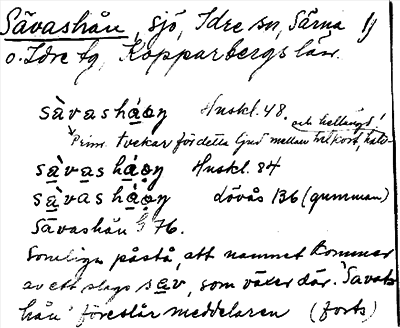 Sävashån, sjö, Idre sn, Särna
o. Idre tg, Kopparbergs län.
sàvashá̱o̱ŋ Huskl. 48.
och hellångd!
Prim. tvekar för detta ljud mellan hel kort, halv-
sà̱va̱shá̱o̱ŋ Huskl. 84
sà̱vashá̱o̱ŋ Lövås 136 (gumman)
Sävashån § 76.
Somliga påstå, att namnet kommer
av ett slags sa̱v, som växer där. 'Savas-
hån' föreslår meddelaren (forts)